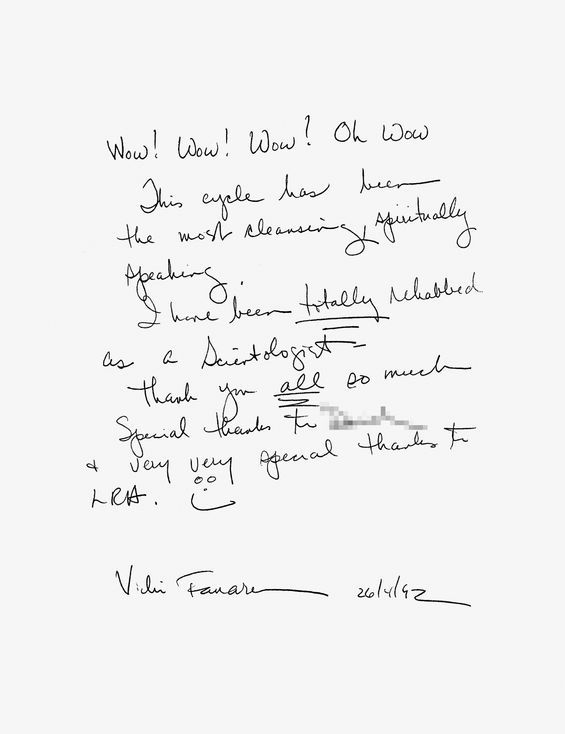 Wow! Wow! Wow! Oh Wow
This cycle has been
the most cleansing, spiritually
speaking.
I have been totally rehabbed
as a Scientologist –
Thank you all so much
Special thanks to
& very very special thanks to
LRH.
26/4/92